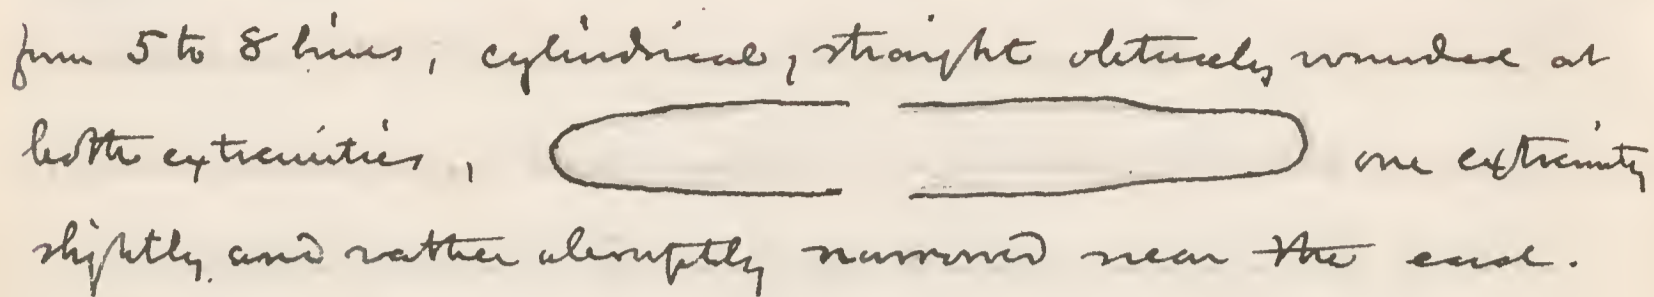 from 5 to 8 lines, cylindrical, straight obtusely rounded at
both extremities, one extremity
slightly and rather abruptly narrowed near the end.